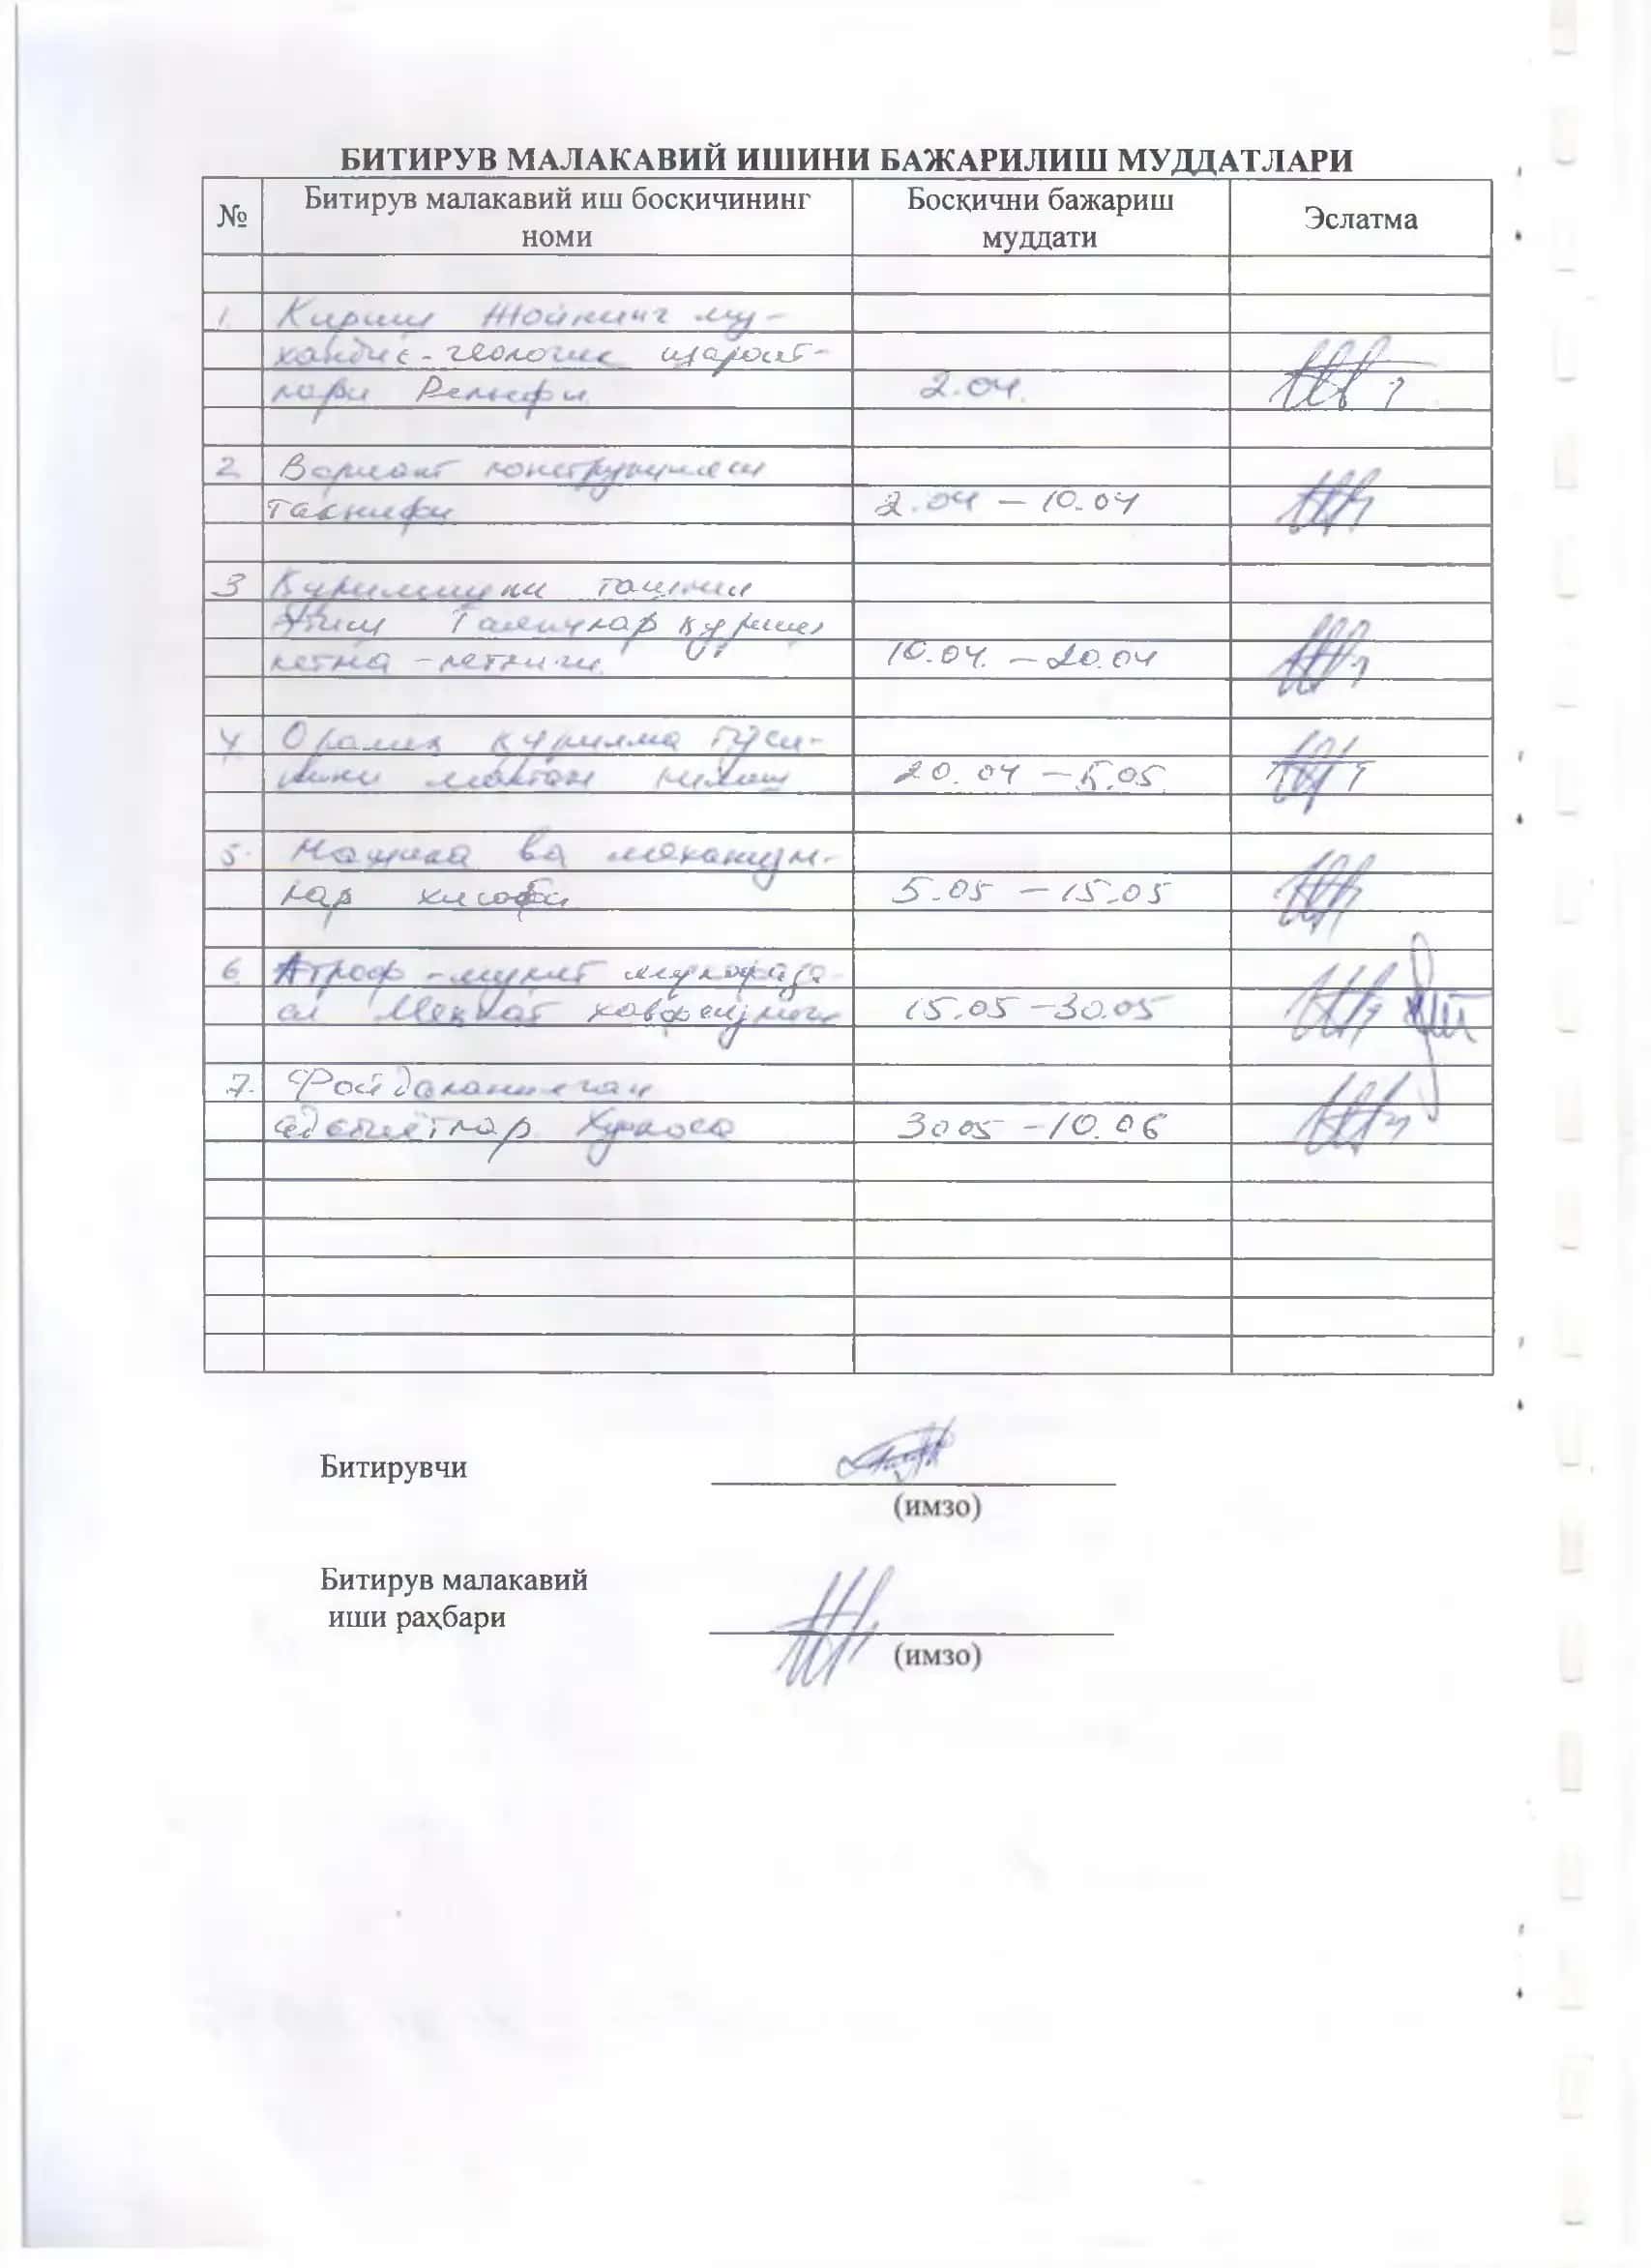 БИТИРУВ МАЛАКАВИЙ ИШИНИ БАЖАРИЛИШ МУДДАТЛАРИ
№ Битирув малакавий иш босқичининг номи Босқични бажариш муддати Эслатма
1. Кириш Жойнинг му-
хандис-геологик шароит-
лари Рельефи 2.04.
2 Вариант
таклифи 2.04 – 10.04
3 Қурилишни ташкил
қуриш
кетма-кетлиги. 10.04. – 20.04
4. Оралиқ қурилма
қилиш 20.04 – 5.05.
5. Машина ва механизм-
лар хисоби 5.05 – 15.05
6. Атроф-мухит
Мехнат хавфсизлиги 15.05 – 30.05
7. Фойдаланилган
адабиётлар. Хулоса 3005 – 10.06
Битирувчи
(имзо)
Битирув малакавий
иши раҳбари
(имзо)